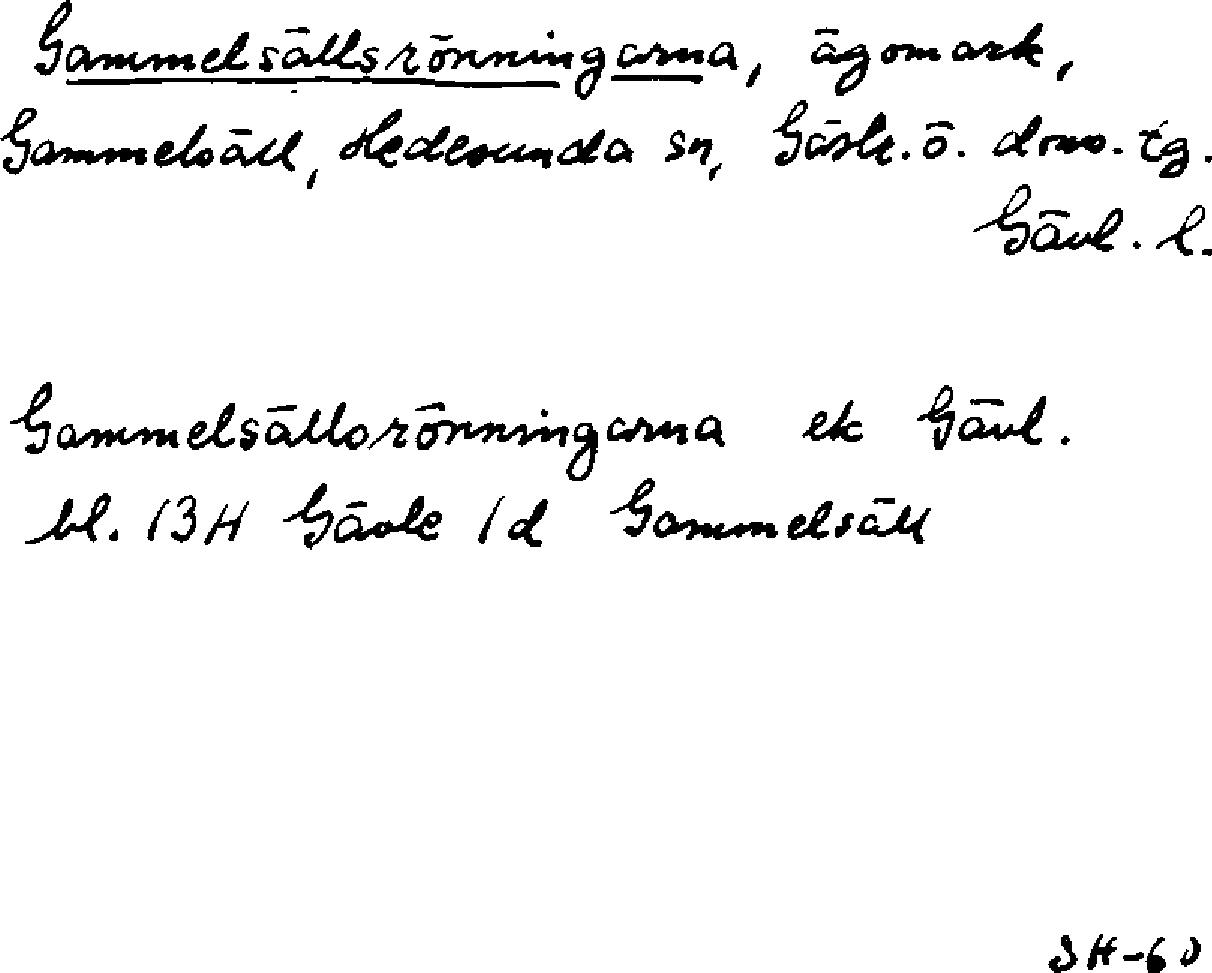 Gammelsällsrönningarna, ägomark,
Gammelsäll, Hedesunda sn, Gästr. ö. doms. tg.
Gävl. l.
Gammelsällsrönningarna ek Gävl.
bl. 13H Gävle 1d Gammelsäll
SH-60